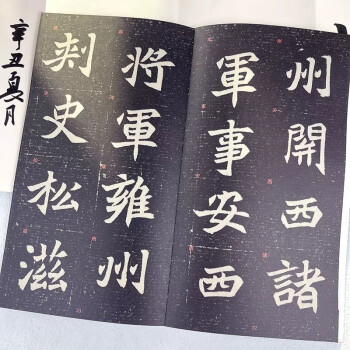 州開西諸
軍事安西
將軍雍州
刾史松滋
辛丑夏月